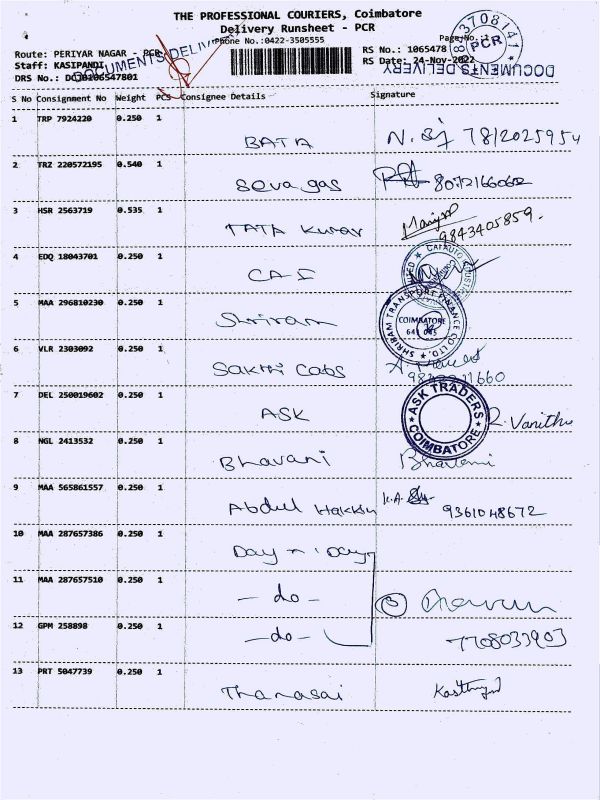 THE PROFESSIONAL COURIERS, Coimbatore
Delivery Runsheet - PCR
Phone No.:0422-3505555
Page No.
Route: PERIYAR NAGAR - PCR
RS No.: 1065478
Staff: KASIPANDI
RS Date: 24-Nov-2022
DRS No.:
DOCUMENTS DELIVERY
DOCUMENTS DELIVERY
PCR
S No Consignment No Weight PCS Consignee Details Signature
1 TRP 7924220 0.250 1 BATA 7812025954
2 TRZ 220572195 0.540 1 Seva gas 8072166062
3 HSR 2563719 0.535 1 TATA Kumar 9843405859.
4 EDQ 18043701 0.250 1
5 MAA 296810230 0.250 1 Shriram
SHRIRAM TRANSPORT FINANCE CO LTD.
COIMBATORE
6 VLR 2303092 0.250 1 Sakthi Cabs
7 DEL 250019602 0.250 1 ASK R. Vanitha
ASK TRADERS
COIMBATORE
8 NGL 2413532 0.250 1 Bhavani
9 MAA 565861557 0.250 1 Abdul Hakkim K.A. 9361048672
10 MAA 287657386 0.250 1 Day n Day
11 MAA 287657510 0.250 1 - do -
12 GPM 258898 0.250 1 - do - 7708033903
13 PRT 5047739 0.250 1 Thanasai